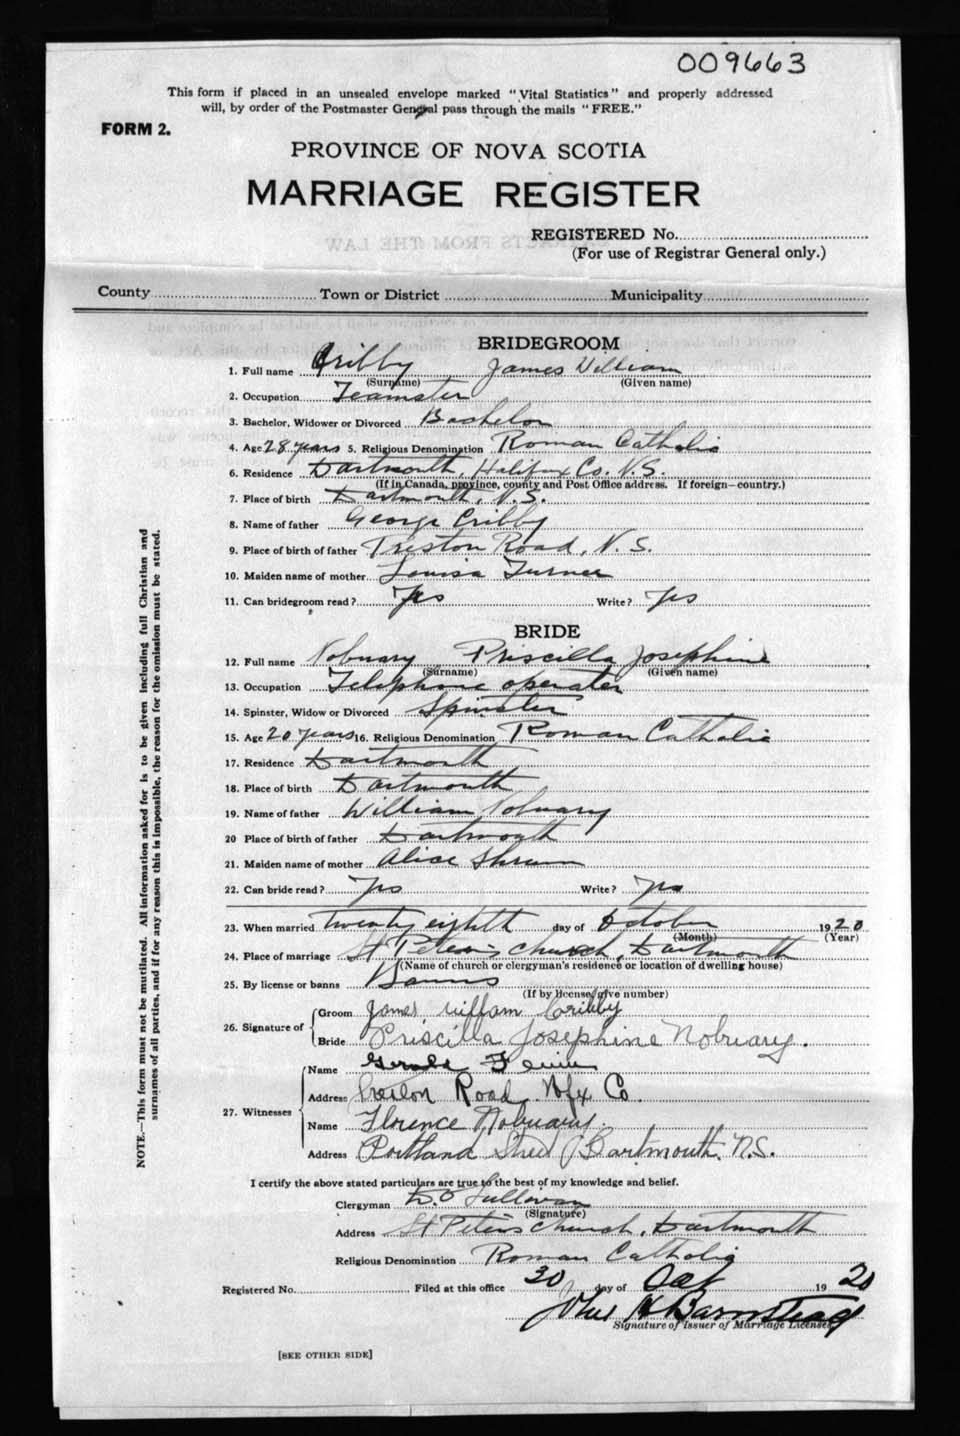 009663
This form if placed in an unsealed envelope marked "Vital Statistics" and properly addressed
will, by order of the Postmaster General pass through the mails "FREE."
FORM 2.
PROVINCE OF NOVA SCOTIA
MARRIAGE REGISTER
REGISTERED No.
(For use of Registrar General only.)
County Town or District Municipality
BRIDEGROOM
1. Full name Cribby James William
(Surname) (Given name)
2. Occupation Teamster
3. Bachelor, Widower or Divorced Bachelor
4. Age 28 years 5. Religious Denomination Roman Catholic
6. Residence Dartmouth, Halifax Co. N.S.
(If in Canada, province, county and Post Office address. If foreign—country.)
7. Place of birth Dartmouth, N.S.
8. Name of father George Cribby
9. Place of birth of father Preston Road, N.S.
10. Maiden name of mother Louisa Turner
11. Can bridegroom read? Yes Write? Yes
BRIDE
12. Full name Nobuary Priscilla Josephine
(Surname) (Given name)
13. Occupation Telephone operator
14. Spinster, Widow or Divorced Spinster
15. Age 20 years 16. Religious Denomination Roman Catholic
17. Residence Dartmouth
18. Place of birth Dartmouth
19. Name of father William Nobuary
20 Place of birth of father Dartmouth
21. Maiden name of mother Alice
22. Can bride read? Yes Write? Yes
23. When married twenty eighth day of October 1920
(Month) (Year)
24. Place of marriage St Peter's Church, Dartmouth
(Name of church or clergyman's residence or location of dwelling house)
25. By license or banns Banns
(If by license, give number)
26. Signature of Groom James William Cribby
Bride Priscilla Josephine Nobuary.
27. Witnesses Name Gerald
Address Preston Road Hfx Co.
Name Florence Nobuary
Address Portland Street Dartmouth. N.S.
I certify the above stated particulars are true to the best of my knowledge and belief.
Clergyman D. O'Sullivan
(Signature)
Address St Peter's Church, Dartmouth
Religious Denomination Roman Catholic
Registered No. Filed at this office 30 day of Oct 1920
John H Barnstead
Signature of Issuer of Marriage Licenses.
[SEE OTHER SIDE]
NOTE.—This form must not be mutilated. All information asked for is to be given including full Christian and
surnames of all parties, and if for any reason this is impossible, the reason for the omission must be stated.